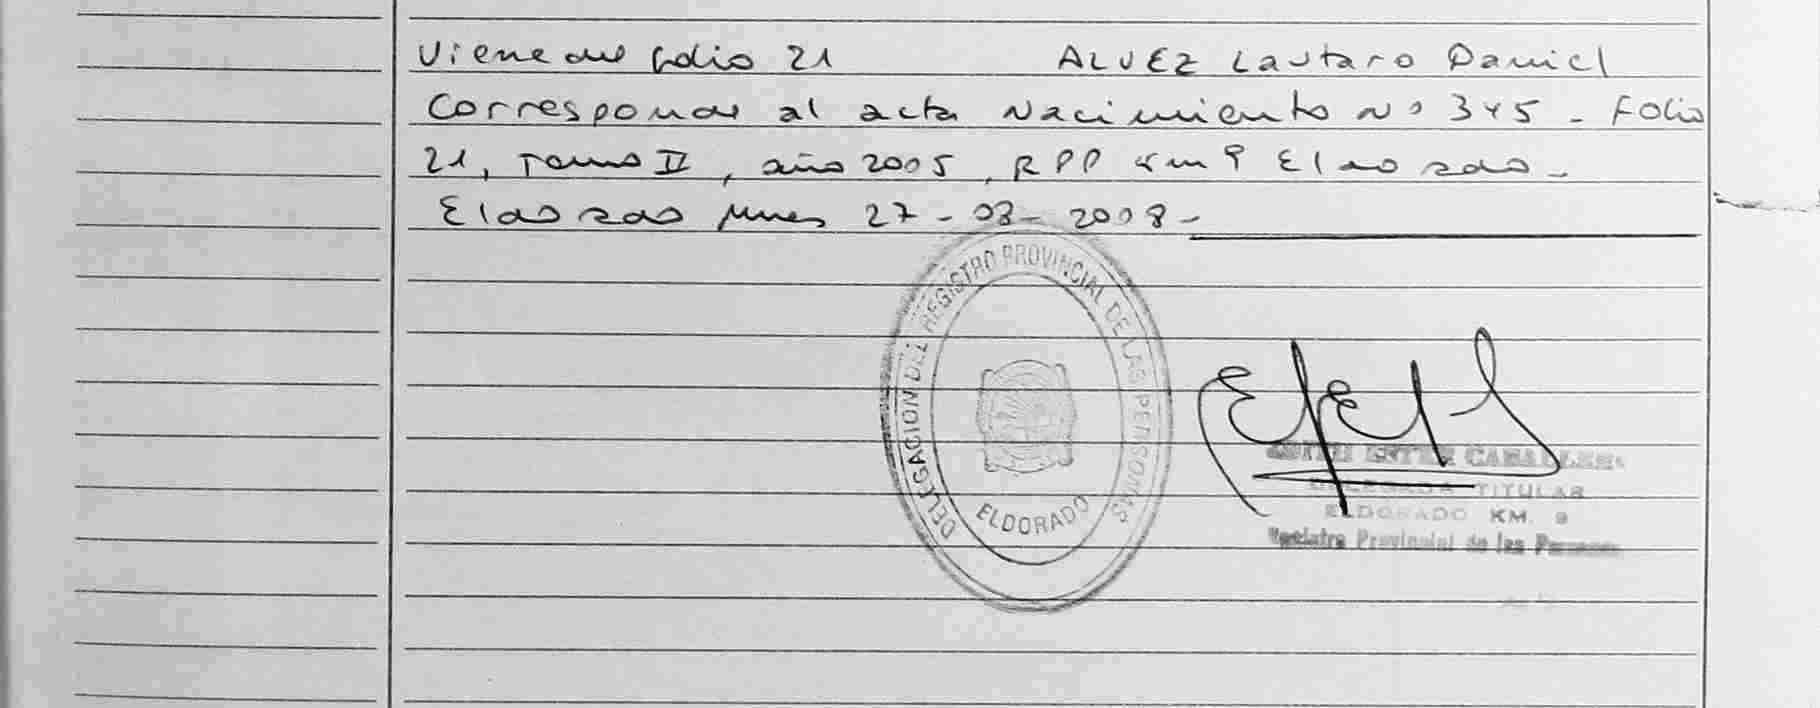 Viene del folio 21 ALVEZ Lautaro Daniel
Corresponde al acta Nacimiento Nº 345 - Folio
21, Tomo II, año 2005, RPP Km 9 Eldorado -
Eldorado Mnes 27-03-2008-
DELEGACION DEL REGISTRO PROVINCIAL DE LAS PERSONAS
ELDORADO
DELEGADA TITULAR
ELDORADO KM. 9
Registro Provincial de las Personas